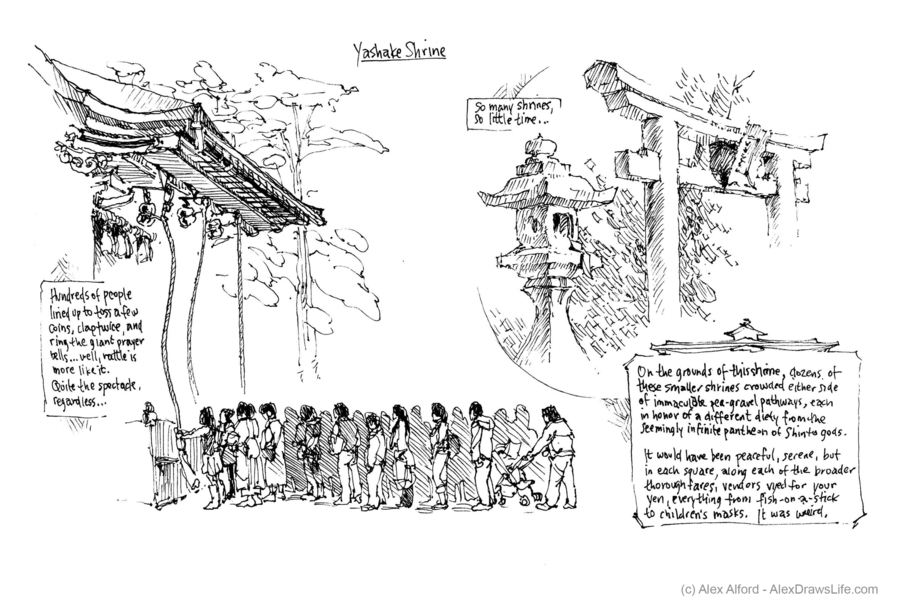 Yashake Shrine
So many shrines,
so little time...
Hundreds of people
lined up to toss a few
coins, clap twice, and
ring the giant prayer
bells... well, rattle is
more like it.
Quite the spectacle,
regardless...
On the grounds of this shrine, dozens of
these smaller shrines crowded either side
of immaculate pea-gravel pathways, each
in honor of a different diety from the
seemingly infinite pantheon of Shinto gods.
It would have been peaceful, serene, but
in each square, along each of the broader
thoroughfares, vendors vied for your
yen, everything from fish-on-a-stick
to children's masks. It was weird.
(c) Alex Alford - AlexDrawsLife.com